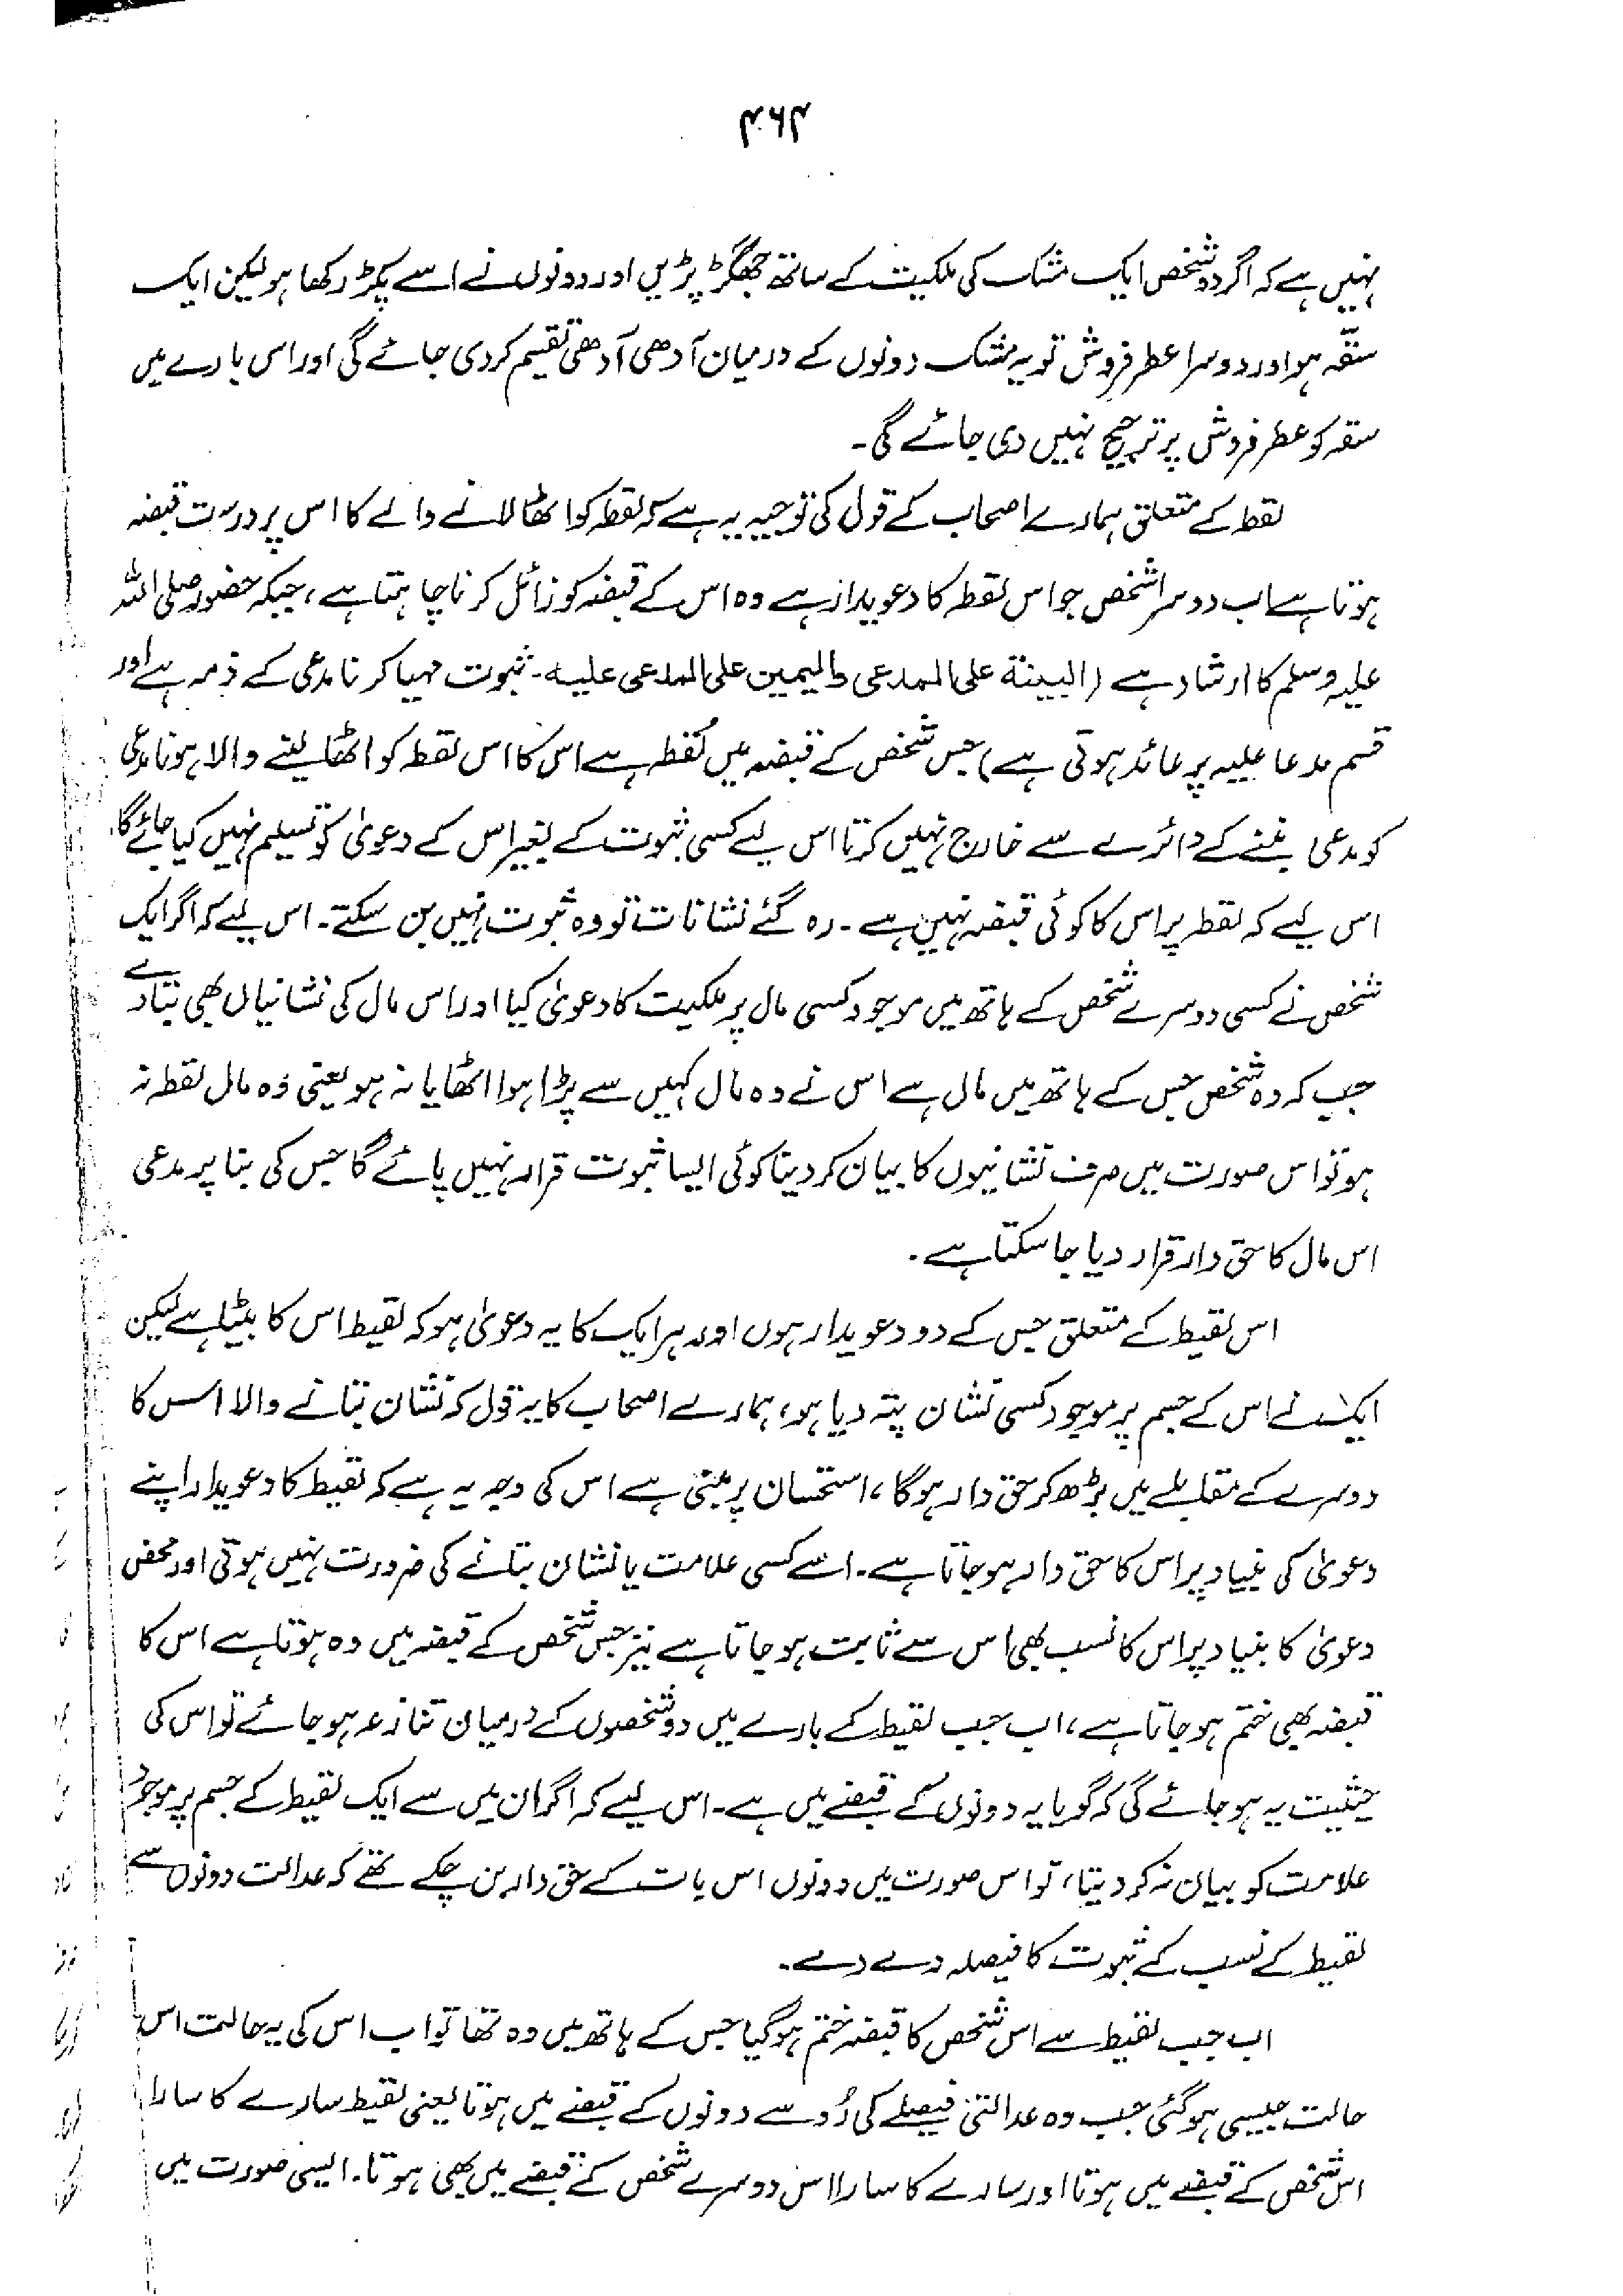 ۴۶۴
نہیں ہے کہ اگر دو شخص ایک مشک کی ملکیت کے ساتھ جھگڑ پڑیں اور دونوں نے اسے پکڑ رکھا ہو لیکن ایک
سقّہ ہو اور دوسرا عطر فروش تو یہ مشک دونوں کے درمیان آدھی آدھی تقسیم کر دی جائے گی اور اس بارے میں
سقہ کو عطر فروش پر ترجیح نہیں دی جائے گی۔
لقطہ کے متعلق ہمارے اصحاب کے قول کی توجیہ یہ ہے کہ لقطہ کو اٹھا لانے والے کا اس پر درست قبضہ
ہوتا ہے اب دوسرا شخص جو اس لقطہ کا دعویدار ہے وہ اس کے قبضہ کو زائل کرنا چاہتا ہے، جبکہ حضور صلی اللہ
علیہ وسلم کا ارشاد ہے (البینۃ علی المدعی والیمین علی المدعی علیہ۔ ثبوت مہیا کرنا مدعی کے ذمہ ہے اور
قسم مدعا علیہ پر عائد ہوتی ہے) جس شخص کے قبضہ میں لُقطہ ہے اس کا اس لقطہ کو اٹھا لینے والا ہونا مدعی
کو مدعی بننے کے دائرے سے خارج نہیں کرتا اس لیے کسی ثبوت کے بغیر اس کے دعویٰ کو تسلیم نہیں کیا جائے گا،
اس لیے کہ لقطہ پر اس کا کوئی قبضہ نہیں ہے۔ رہ گئے نشانات تو وہ ثبوت نہیں بن سکتے۔ اس لیے کہ اگر ایک
شخص نے کسی دوسرے شخص کے ہاتھ میں موجود کسی مال پر ملکیت کا دعویٰ کیا اور اس مال کی نشانیاں بھی بتا دے
جب کہ وہ شخص جس کے ہاتھ میں مال ہے اس نے وہ مال کہیں سے پڑا ہوا اٹھایا نہ ہو یعنی وہ مال لقطہ نہ
ہو تو اس صورت میں صرف نشانیوں کا بیان کر دینا کوئی ایسا ثبوت قرار نہیں پائے گا جس کی بنا پر مدعی
اس مال کا حق دار قرار دیا جا سکتا ہے۔
اس لقیط کے متعلق جس کے دو دعویدار ہوں اور ہر ایک کا یہ دعویٰ ہو کہ لقیط اس کا بیٹا ہے لیکن
ایک نے اس کے جسم پر موجود کسی نشان پتہ دیا ہو، ہمارے اصحاب کا یہ قول کہ نشان بتانے والا اس کا
دوسرے کے مقابلے میں بڑھ کر حق دار ہوگا، استحسان پر مبنی ہے اس کی وجہ یہ ہے کہ لقیط کا دعویدار اپنے
دعویٰ کی بنیاد پر اس کا حق دار ہو جاتا ہے۔ اسے کسی علامت یا نشان بتانے کی ضرورت نہیں ہوتی اور محض
دعویٰ کا بنیاد پر اس کا نسب بھی اس سے ثابت ہو جاتا ہے نیز جس شخص کے قبضہ میں وہ ہوتا ہے اس کا
قبضہ بھی ختم ہو جاتا ہے، اب جب لقیط کے بارے میں دو شخصوں کے درمیان تنازعہ ہو جائے تو اس کی
حیثیت یہ ہو جائے گی کہ گویا یہ دونوں کے قبضے میں ہے۔ اس لیے کہ اگر ان میں سے ایک لقیط کے جسم پر موجود
علامت کو بیان نہ کر دیتا، تو اس صورت میں دونوں اس بات کے حق دار بن چکے تھے کہ عدالت دونوں سے
لقیط کے نسب کے ثبوت کا فیصلہ دے دے۔
اب جب لقیط سے اس شخص کا قبضہ ختم ہو گیا جس کے ہاتھ میں وہ تھا تو اب اس کی یہ حالت اس
حالت جیسی ہوگئی جب وہ عدالتی فیصلے کی رُو سے دونوں کے قبضے میں ہوتا یعنی لقیط سارے کا سارا
اس شخص کے قبضے میں ہوتا اور سارے کا سارا اس دوسرے شخص کے قبضے میں بھی ہوتا۔ ایسی صورت میں